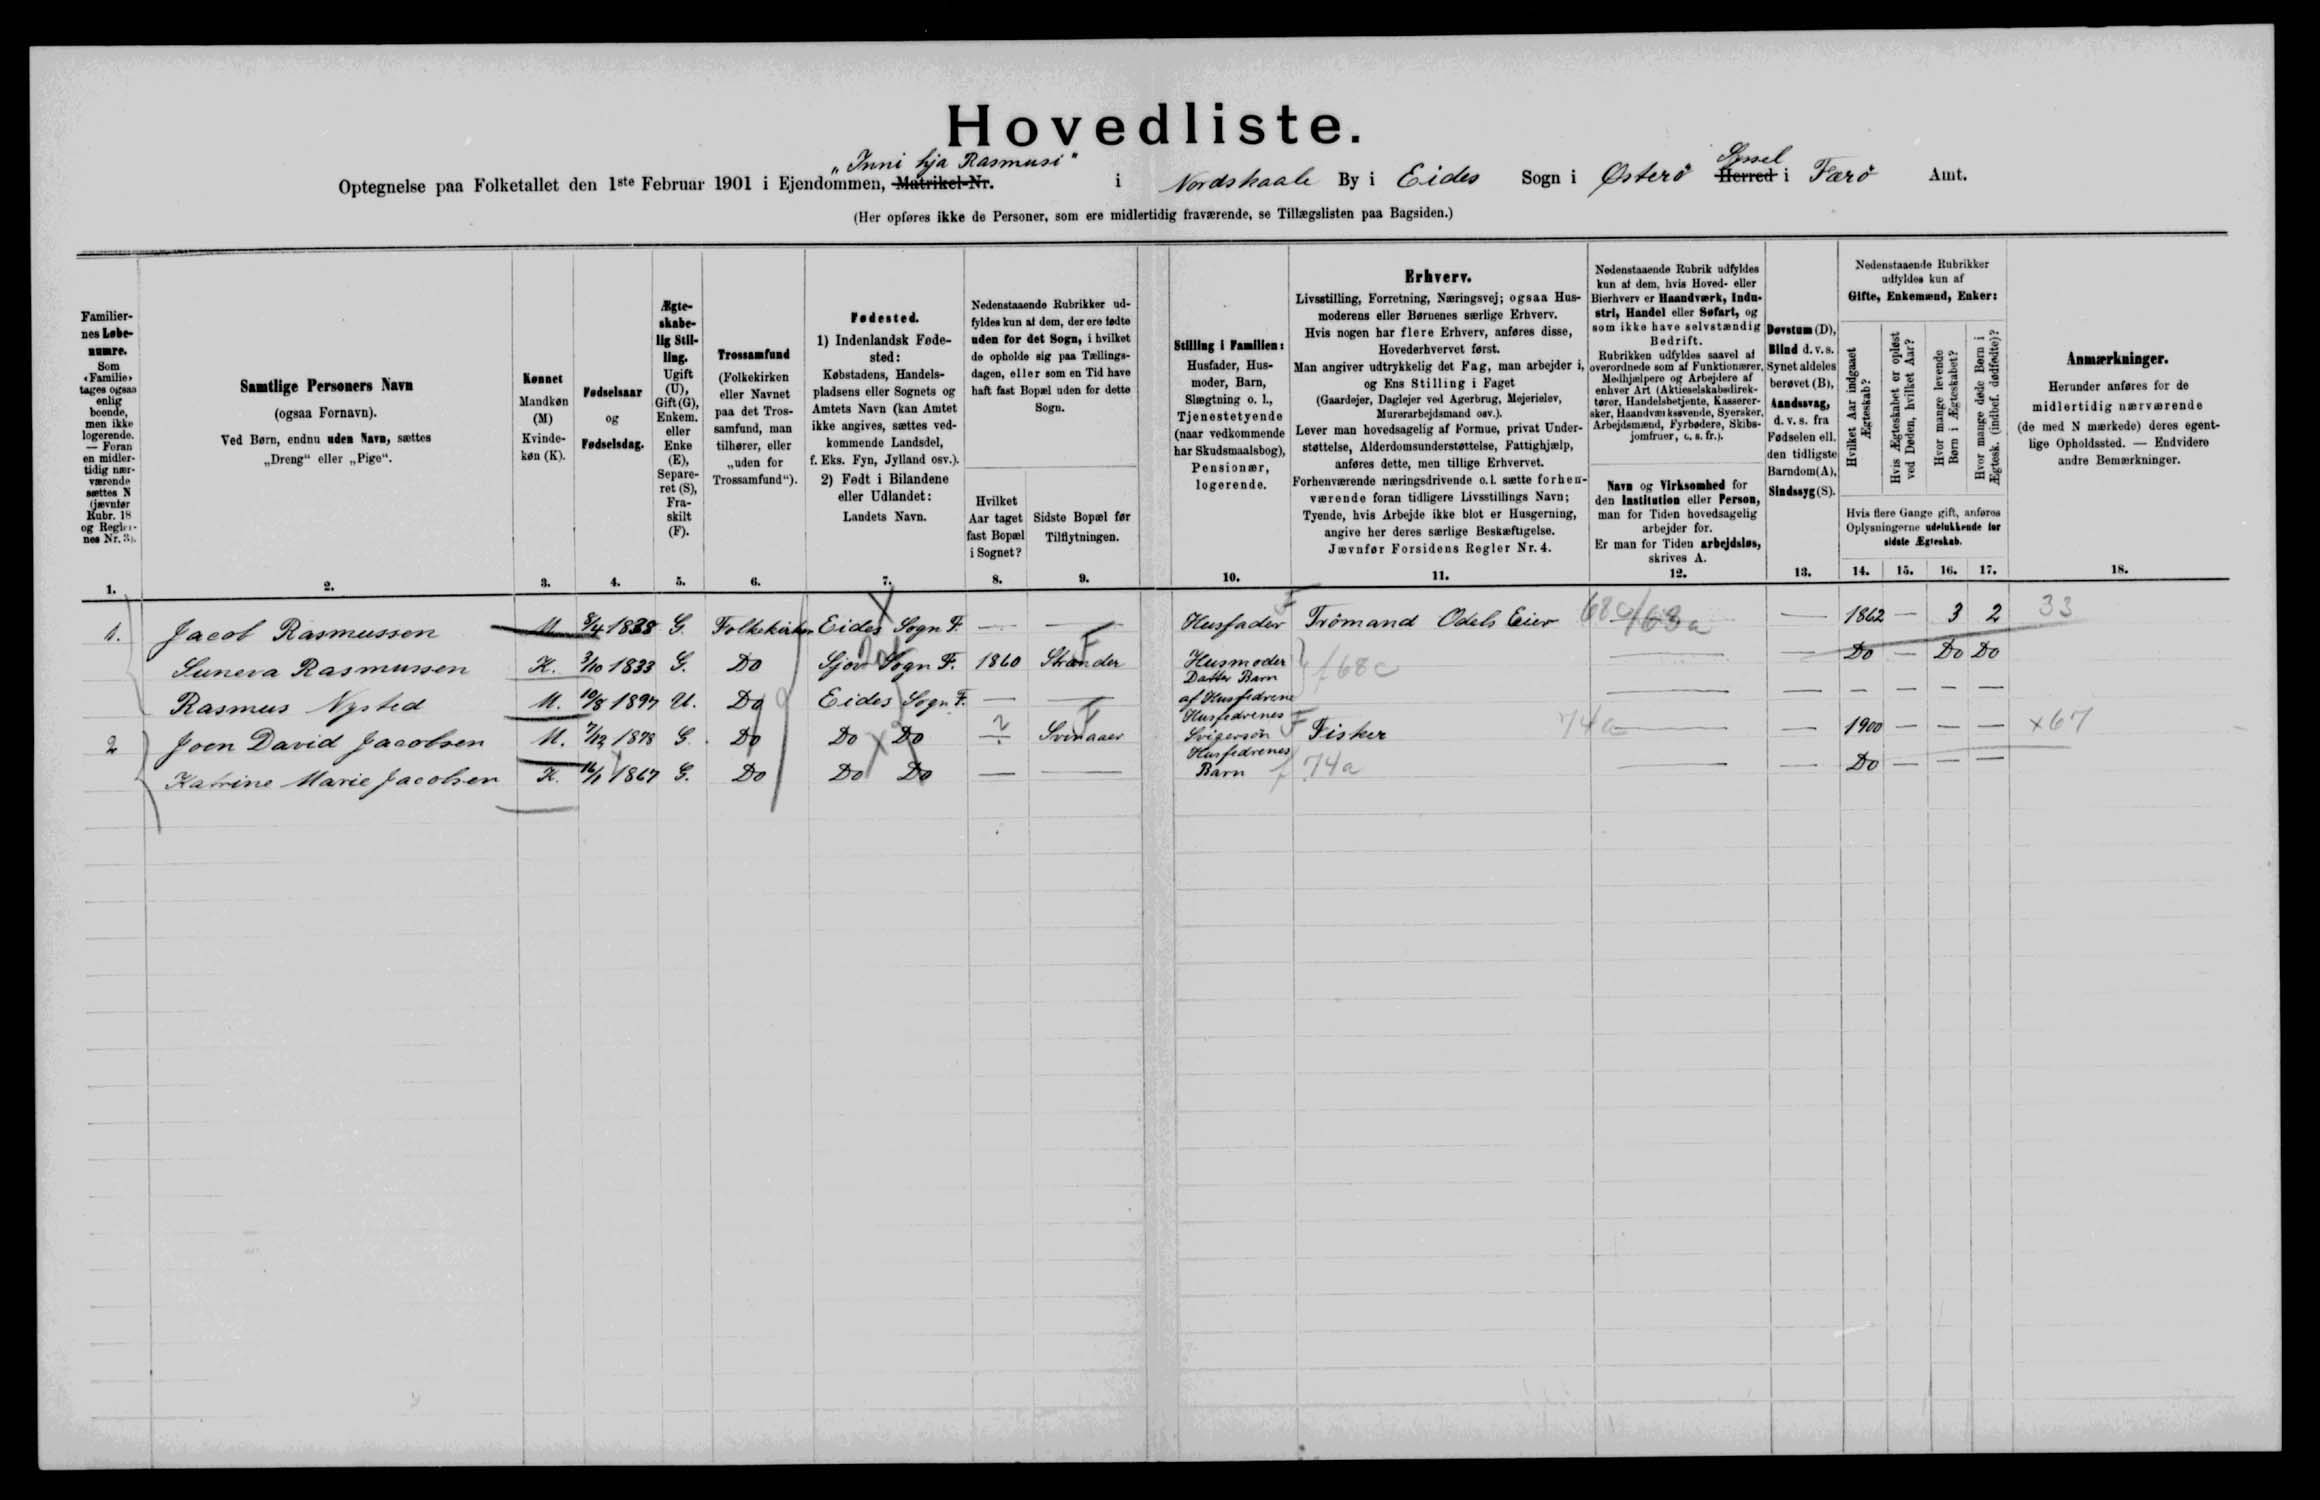 Hovedliste.
"Inni hja Rasmusi"
Optegnelse paa Folketallet den 1ste Februar 1901 i Ejendommen, Matrikel-Nr. i Nordskaale By i Eides Sogn i Østerö Herred Syssel i Færö Amt.
(Her opføres ikke de Personer, som ere midlertidig fraværende, se Tillægslisten paa Bagsiden.)
Familier-
nes Løbe-
numre.
Som
«Familie»
tages ogsaa
enlig
boende,
men ikke
logerende.
— Foran
en midler-
tidig nær-
værende
sættes N
(jævnfør
Rubr. 18
og Regler-
nes Nr. 3).
1.
Samtlige Personers Navn
(ogsaa Fornavn).
Ved Børn, endnu uden Navn, sættes
„Dreng“ eller „Pige“.
2.
Kønnet
Mandkøn
(M)
Kvinde-
køn (K).
3.
Fødselsaar
og
Fødselsdag.
4.
Ægte-
skabe-
lig Stil-
ling.
Ugift
(U),
Gift (G),
Enkem.
eller
Enke
(E),
Separe-
ret (S),
Fra-
skilt
(F).
5.
Trossamfund
(Folkekirken
eller Navnet
paa det Tros-
samfund, man
tilhører, eller
„uden for
Trossamfund“).
6.
Fødested.
1) Indenlandsk Føde-
sted:
Købstadens, Handels-
pladsens eller Sognets og
Amtets Navn (kan Amtet
ikke angives, sættes ved-
kommende Landsdel,
f. Eks. Fyn, Jylland osv.).
2) Født i Bilandene
eller Udlandet:
Landets Navn.
7.
Nedenstaaende Rubrikker ud-
fyldes kun af dem, der ere fødte
uden for det Sogn, i hvilket
de opholde sig paa Tællings-
dagen, eller som en Tid have
haft fast Bopæl uden for dette
Sogn.
Hvilket
Aar taget
fast Bopæl
i Sognet?
8.
Sidste Bopæl før
Tilflytningen.
9.
Stilling i Familien:
Husfader, Hus-
moder, Barn,
Slægtning o. l.,
Tjenestetyende
(naar vedkommende
har Skudsmaalsbog),
Pensionær,
logerende.
10.
Erhverv.
Livsstilling, Forretning, Næringsvej; ogsaa Hus-
moderens eller Børnenes særlige Erhverv.
Hvis nogen har flere Erhverv, anføres disse,
Hovederhvervet først.
Man angiver udtrykkelig det Fag, man arbejder i,
og Ens Stilling i Faget
(Gaardejer, Daglejer ved Agerbrug, Mejerielev,
Murerarbejdsmand osv.).
Lever man hovedsagelig af Formue, privat Under-
støttelse, Alderdomsunderstøttelse, Fattighjælp,
anføres dette, men tillige Erhvervet.
Forhenværende næringsdrivende o. l. sætte forhen-
værende foran tidligere Livsstillings Navn;
Tyende, hvis Arbejde ikke blot er Husgerning,
angive her deres særlige Beskæftigelse.
Jævnfør Forsidens Regler Nr. 4.
11.
Nedenstaaende Rubrik udfyldes
kun af dem, hvis Hoved- eller
Bierhverv er Haandværk, Indu-
stri, Handel eller Søfart, og
som ikke have selvstændig
Bedrift.
Rubrikken udfyldes saavel af
overordnede som af Funktionærer,
Medhjælpere og Arbejdere af
enhver Art (Aktieselskabsdirek-
tører, Handelsbetjente, Kasserer-
sker, Haandværkssvende, Syersker,
Arbejdsmænd, Fyrbødere, Skibs-
jomfruer, o. s. fr.).
Navn og Virksomhed for
den Institution eller Person,
man for Tiden hovedsagelig
arbejder for.
Er man for Tiden arbejdsløs,
skrives A.
12.
Døvstum (D),
Blind d. v. s.
Synet aldeles
berøvet (B),
Aandssvag,
d. v. s. fra
Fødselen ell.
den tidligste
Barndom (A),
Sindssyg (S).
13.
Nedenstaaende Rubrikker
udfyldes kun af
Gifte, Enkemænd, Enker:
Hvilket Aar indgaaet
Ægteskab?
Hvis Ægteskabet er opløst
ved Døden, hvilket Aar?
Hvor mange levende
Børn i Ægteskabet?
Hvor mange døde Børn i
Ægtesk. (indbef. dødfødte)?
Hvis flere Gange gift, anføres
Oplysningerne udelukkende for
sidste Ægteskab.
14. 15. 16. 17.
Anmærkninger.
Herunder anføres for de
midlertidig nærværende
(de med N mærkede) deres egent-
lige Opholdssted. — Endvidere
andre Bemærkninger.
18.
1. Jacob Rasmussen M. 8/4 1838 G. Folkekirken Eides Sogn F. — — Husfader F Trömand Odels Eier 68c/68a — 1862 — 3 2 33
Suneva Rasmussen K. 3/10 1833 G. Do Sjov Sogn F. 1860 Strander F Husmoder f 68c — — Do — Do Do
Rasmus Nysted M. 10/8 1897 U. Do Eides Sogn F. — — Datter Barn
af Husfedrene — — — — — —
2 Joen David Jacobsen M. 7/12 1878 G. Do Do Do ÷ Svinaaer F Husfedrenes
Svigersön F Fisker 74a — — 1900 — — — x67
Katrine Marie Jacobsen K. 16/1 1867 G. Do Do Do — — Husfedrenes
Barn f 74a — — Do — — —